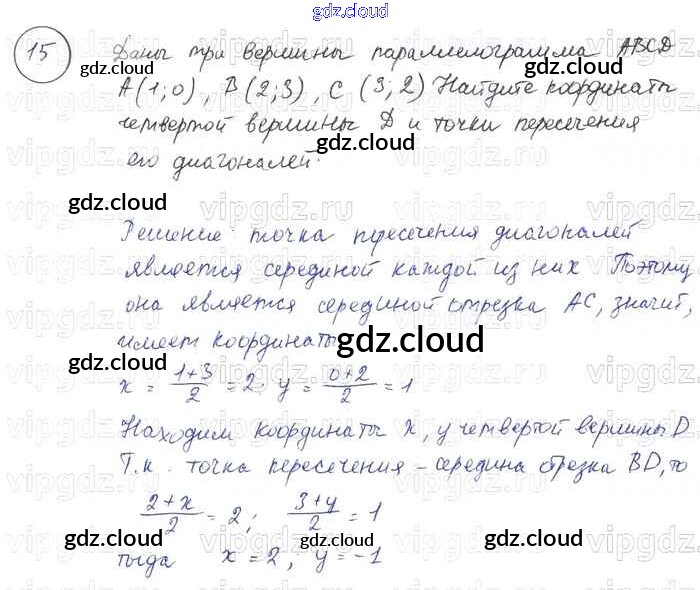 gdz.cloud
15 Даны три вершины параллелограмма ABCD
gdz.cloud gdz.cloud
A(1;0), B(2;3), C (3;2) Найдите координаты
четвертой вершины D и точки пересечения
gdz.cloud
его диагоналей.
gdz.cloud
vipgdz.ru
Решение: точка пересечения диагоналей
является серединой каждой из них Поэтому
она является серединой отрезка AC, значит,
имеет координаты
gdz.cloud
gdz.cloud
x = (1+3)/2 = 2, y = (0+2)/2 = 1
Находим координаты x, y четвертой вершины D
Т.к. точка пересечения – середина отрезка BD, то
(2+x)/2 = 2; (3+y)/2 = 1
gdz.cloud gdz.cloud gdz.cloud
тогда x = 2; y = -1